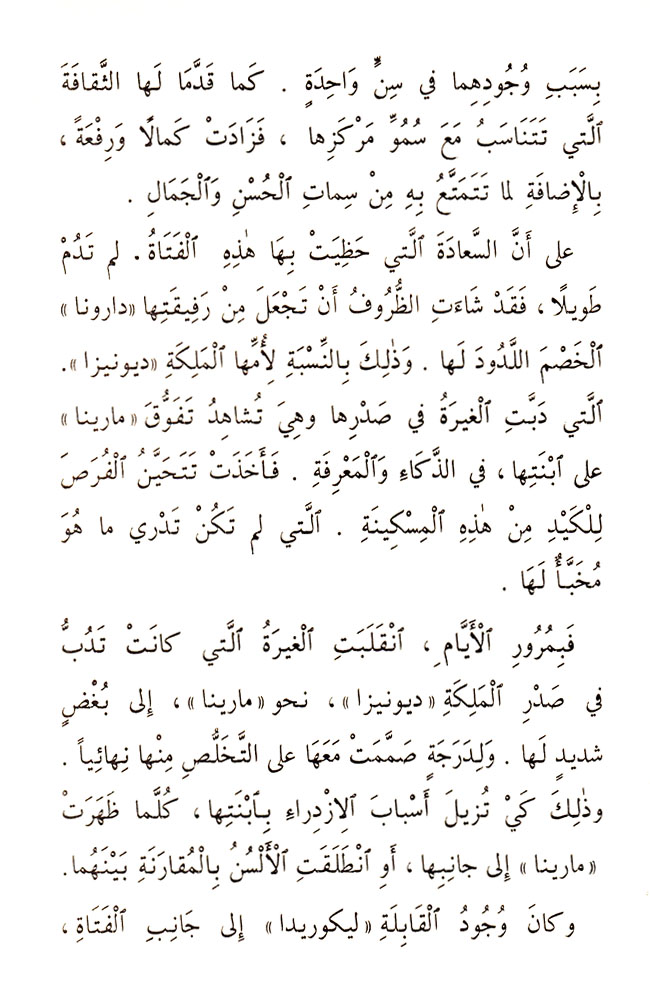 بِسَبَبِ وُجُودِهِما في سِنٍّ وَاحِدَةٍ . كَما قَدَّمَا لَها الثَّقافَةَ
ٱلَّتي تَتَنَاسَبُ مَعَ سُمُوِّ مَرْكَزِها ، فَزَادَتْ كَمالًا وَرِفْعَةً ،
بِالْإِضافَةِ لما تَتَمَتَّعُ بِهِ مِنْ سِماتِ ٱلْحُسْنِ وَٱلْجَمَالِ .
على أَنَّ السَّعادَةَ ٱلَّتي حَظِيَتْ بِهَا هٰذِهِ ٱلْفَتَاةُ . لم تَدُمْ
طَويلًا ، فَقَدْ شَاءَتِ الظُّرُوفُ أَنْ تَجْعَلَ مِنْ رَفِيقَتِها «دارونا»
ٱلْخَصْمَ اللَّدُودَ لَها . وَذٰلِكَ بِالنِّسْبَةِ لِأُمِّها ٱلْمَلِكَةِ «ديونيزا».
ٱلَّتي دَبَّتِ ٱلْغيرَةُ في صَدْرِها وهِيَ تُشاهِدُ تَفَوُّقَ «مارينا»
على ٱبْنَتِها ، في الذَّكَاءِ وَٱلْمَعْرِفَةِ . فَأَخَذَتْ تَتَحَيَّنُ ٱلْفُرَصَ
لِلْكَيْدِ مِنْ هٰذِهِ ٱلْمِسْكِينَةِ . ٱلَّتي لم تَكُنْ تَدْري ما هُوَ
مُخَبَّأٌ لَهَا .
فَبِمُرُورِ ٱلْأَيَّامِ ، ٱنْقَلَبَتِ ٱلْغيرَةُ ٱلَّتي كانَتْ تَدُبُّ
في صَدْرِ ٱلْمَلِكَةِ «ديونيزا» ، نحو «مارينا» ، إلى بُغْضٍ
شديدٍ لَها . وَلِدَرَجَةٍ صَمَّمَتْ مَعَهَا على التَّخَلُّصِ مِنْها نِهائِياً .
وذٰلِكَ كَيْ تُزيلَ أَسْبابَ ٱلِازْدِراءِ بِٱبْنَتِها ، كُلَّما ظَهَرَتْ
«مارينا» إلى جانِبِها ، أَوِ ٱنْطَلَقَتِ ٱلْأَلْسُنُ بِالْمُقارَنَةِ بَيْنَهُما.
وكانَ وُجُودُ ٱلْقَابِلَةِ «ليكوريدا» إلى جَانِبِ ٱلْفَتَاةِ ،